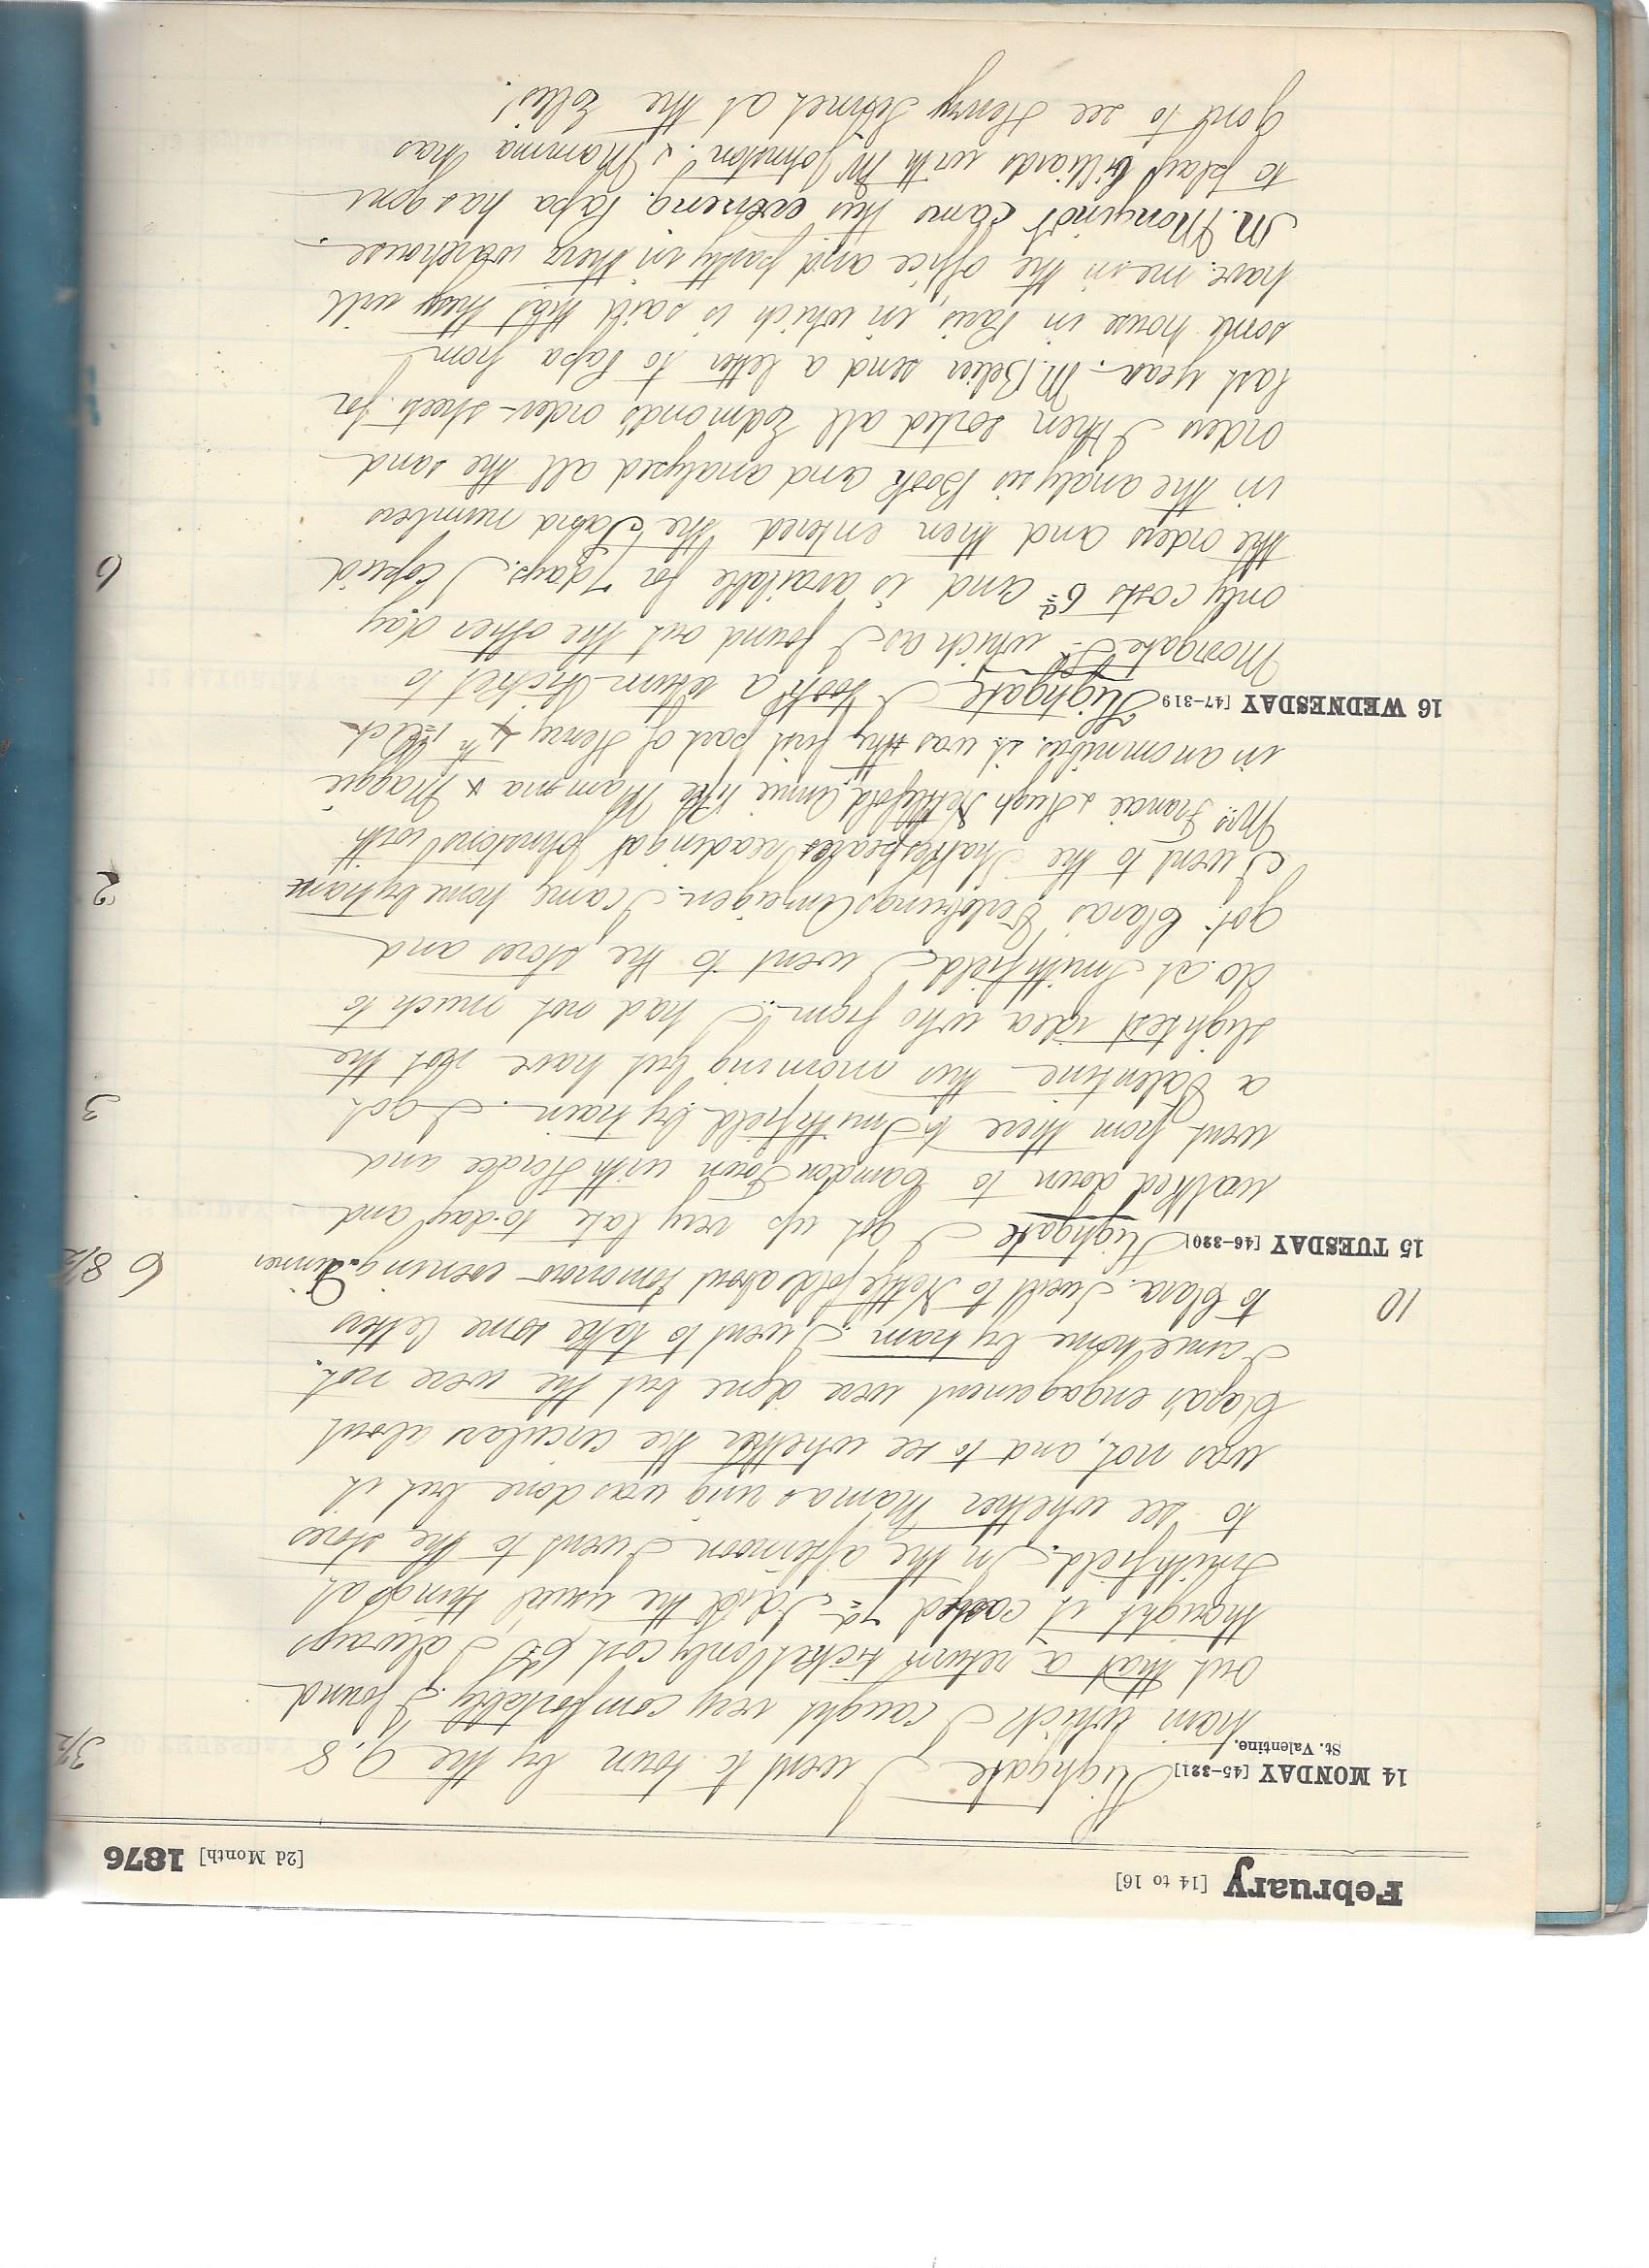 February [14 to 16] [2d Month] 1876
14 MONDAY [45-321] Highgate I went to town by the 9.8 3½
St. Valentine.
train which I caught very comfortably. I found
out that a return ticket only cost 6d I always
thought it costed 7d. I did the usual things at
Smithfield. In the afternoon I went to the stores
to see whether Mamas ring was done but it
was not, and to see whether the circulars about
Clara's engagement were done but the were not.
I came home by tram. I went to take some letters
10 to Clara. I went to Nettlefolds about tomorrow evening. Dinner 6 8½
15 TUESDAY [46-320] Highgate I got up very late to-day and
walked down to Camden Town with and
went from there to Smithfield by train. I got 3
a Valentine this morning but have not the
slightest idea who from. I had not much to
do at Smithfield. I went to the stores and
got Clara's Verlobungs Anzeigen. I came home by tram 2
I went to the Shakespeares reading at Johnstons with
Mrs. Francis & Hugh Nettlefold, Annie Mamma & Maggie
in an omnibus. it was the first part of Henry 4th
16 WEDNESDAY [47-319 Highgate I took a return ticket to
Moorgate St. which as I found out the other day
only costs 6d and is available for 7 days. I copied 6
the orders and then entered the numbers
in the analysis Book and analyzed all the sand
orders I then sorted all Edmond's order-sheets for
last year. M. Belier send a letter to Papa from
some house in Paris, in which is said that they will
have me in the office and partly in their warehouse.
M. came this evening. Papa has gone
to play billiards with Mr Johnston. & Mamma has
gone to see Henry at the